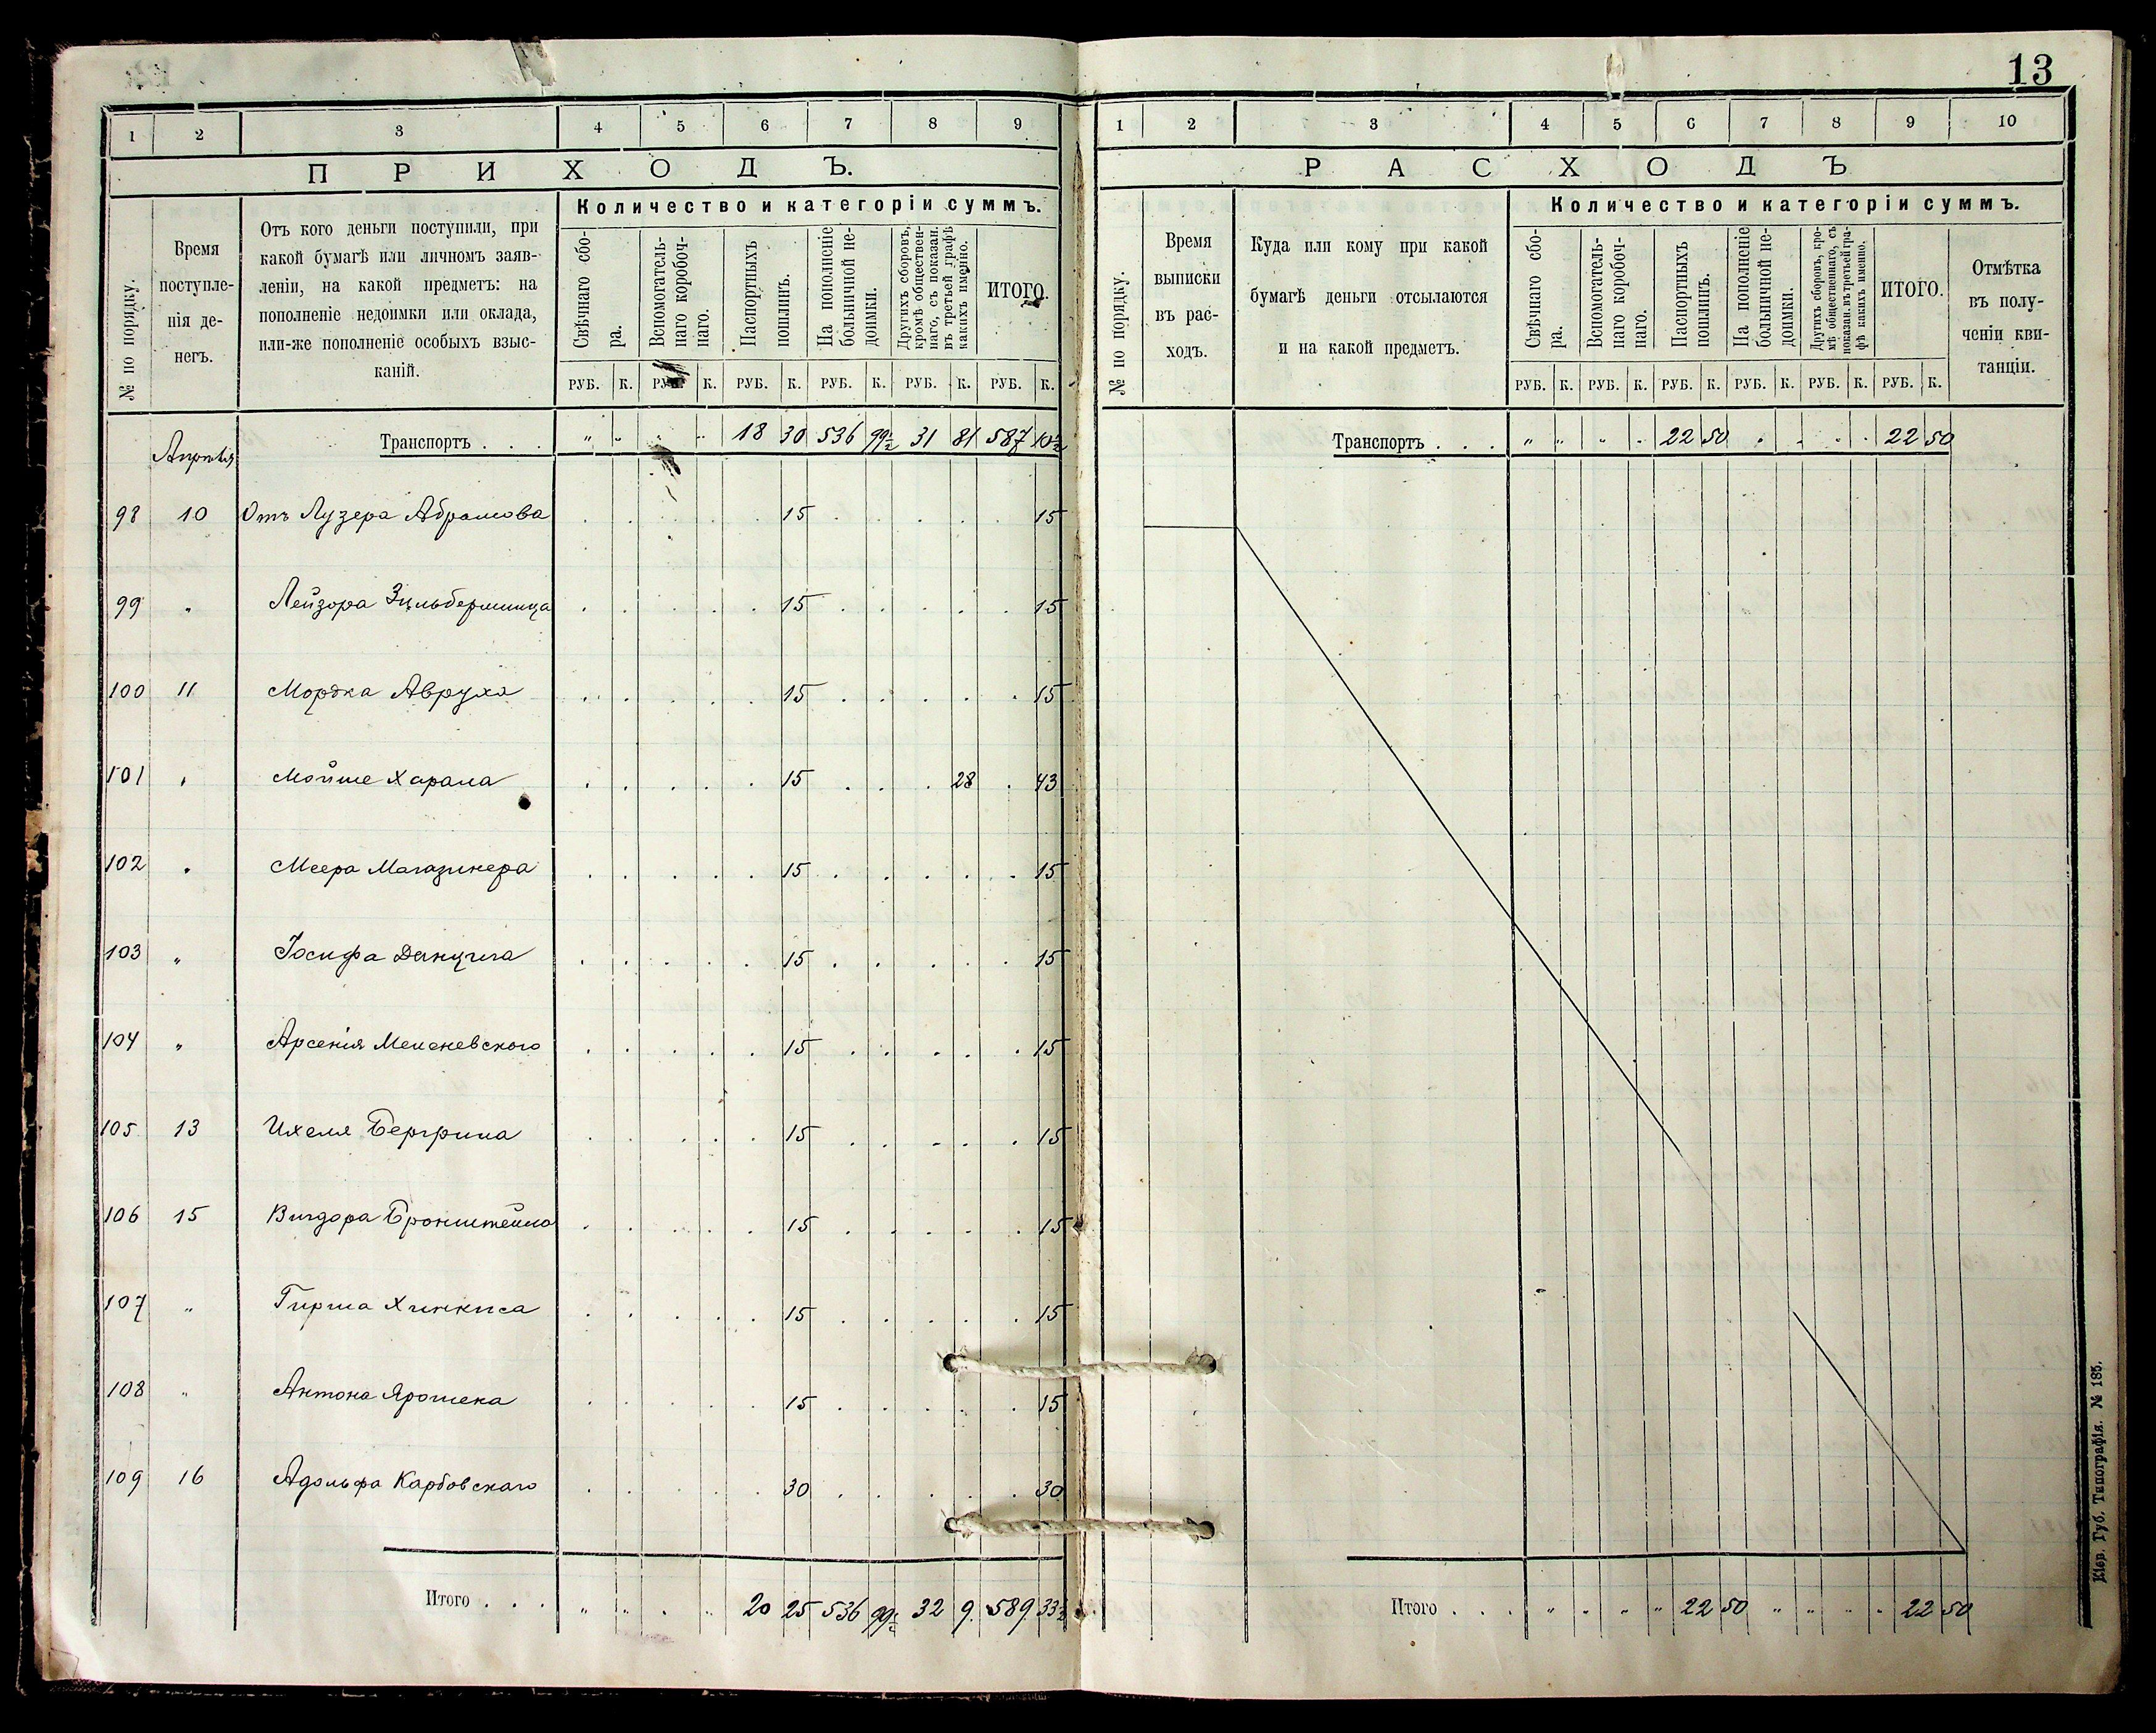 13
1 2 3 4 5 6 7 8 9
ПРИХОДЪ.
№ по порядку.
Время
поступле-
нія де-
негъ.
Отъ кого деньги поступили, при
какой бумагѣ или личномъ заяв-
леніи, на какой предметъ: на
пополненіе недоимки или оклада,
или-же пополненіе особыхъ взыс-
каній.
Количество и категоріи суммъ.
Свѣчнаго сбо-
ра.
Вспомогатель-
наго коробоч-
наго.
Паспортныхъ
пошлинъ.
На пополненіе
больничной не-
доимки.
Другихъ сборовъ,
кромѣ обществен-
наго, съ показан.
въ третьей графѣ
какихъ именно.
ИТОГО.
РУБ. К. РУБ. К. РУБ. К. РУБ. К. РУБ. К. РУБ. К.
Транспортъ . . . " " . " 18 30 536 99½ 31 81 587 10½
Апрѣля
98 10 Отъ Лузера Абрамова . . . . . 15 . . . . . 15
99 " Лейзора Зильбермица . . . . . 15 . . . . . 15
100 11 Мордка Авруха . . . . . 15 . . . . . 15
101 " Мойше Харала . . . . . 15 . . . 28 . 43
102 " Меера Магазинера . . . . . 15 . . . . . 15
103 " Іосифа Данцига . . . . . 15 . . . . . 15
104 " Арсенія 15 . . . . . 15
105 13 Ихеля 15 . . . . . 15
106 15 Вигдора Бронштейна . . . . . 15 . . . . . 15
107 " Гирша Хинкиса . . . . . 15 . . . . . 15
108 " Антона Ярошека . . . . . 15 . . . . . 15
109 16 Адольфа Карбовскаго . . . . . 30 . . . . . 30
Итого . . . " " . " 20 25 536 99½ 32 9 589 33½
1 2 3 4 5 6 7 8 9 10
РАСХОДЪ
№ по порядку.
Время
выписки
въ рас-
ходъ.
Куда или кому при какой
бумагѣ деньги отсылаются
и на какой предметъ.
Количество и категоріи суммъ.
Свѣчнаго сбо-
ра.
Вспомогатель-
наго коробоч-
наго.
Паспортныхъ
пошлинъ.
На пополненіе
больничной не-
доимки.
Другихъ сборовъ, кро-
мѣ общественнаго, съ
показан. въ третьей гра-
фѣ какихъ именно.
ИТОГО.
Отмѣтка
въ полу-
ченіи кви-
танціи.
РУБ. К. РУБ. К. РУБ. К. РУБ. К. РУБ. К. РУБ. К.
Транспортъ . . . " " " " 22 50 . . . . 22 50
Итого . . . " " " " 22 50 " " " " 22 50
Кіев. Губ. Типографія. № 185.